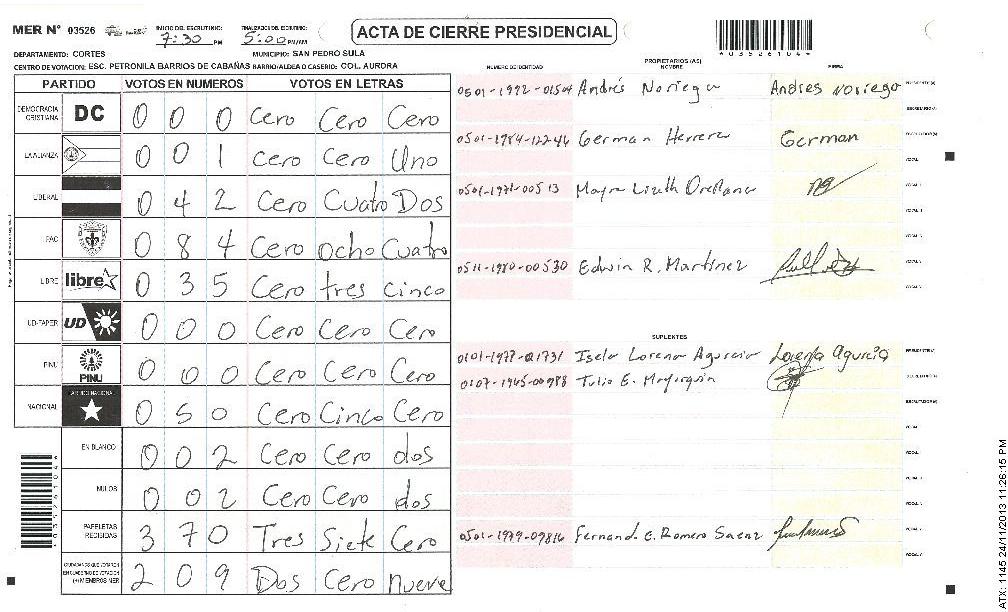 MER N° 03526 INICIO DEL ESCRUTINIO: 7:30 PM FINALIZACION DEL ESCRUTINIO: 5:00 PM/AM ACTA DE CIERRE PRESIDENCIAL
DEPARTAMENTO: CORTES MUNICIPIO: SAN PEDRO SULA
CENTRO DE VOTACION: ESC. PETRONILA BARRIOS DE CABAÑAS BARRIO/ALDEA O CASERIO: COL. AURORA
NUMERO DE IDENTIDAD PROPIETARIOS (AS) NOMBRE FIRMA
PARTIDO VOTOS EN NUMEROS VOTOS EN LETRAS
DEMOCRACIA CRISTIANA DC 0 0 0 Cero Cero Cero
LA ALIANZA 0 0 1 Cero Cero Uno
LIBERAL 0 4 2 Cero Cuatro Dos
PAC 0 8 4 Cero Ocho Cuatro
LIBRE libre 0 3 5 Cero tres Cinco
UD-FAPER UD 0 0 0 Cero Cero Cero
PINU PINU 0 0 0 Cero Cero Cero
NACIONAL PARTIDO NACIONAL 0 5 0 Cero Cinco Cero
EN BLANCO 0 0 2 Cero Cero dos
NULOS 0 0 2 Cero Cero dos
PAPELETAS RECIBIDAS 3 7 0 Tres Siete Cero
CIUDADANOS QUE VOTARON EN CUADERNO DE VOTACION (+) MIEMBROS MER 2 0 9 Dos Cero nueve
0501-1992-01504 Andrés Noriega Andres Noriega
0501-1984-12246 German Herrera German
0501-1971-00513 Mayra Lizeth Orellana
0511-1980-00530 Edwin R. Martinez
SUPLENTES
0101-1977-01731 Isela Lorena Agurcia Lorena agurcia
0107-1965-00988 Tulio E.
0501-1979-09816 Fernando E. Romero Saenz
4035261044
ATX: 1145 24/11/2013 11:26:15 PM